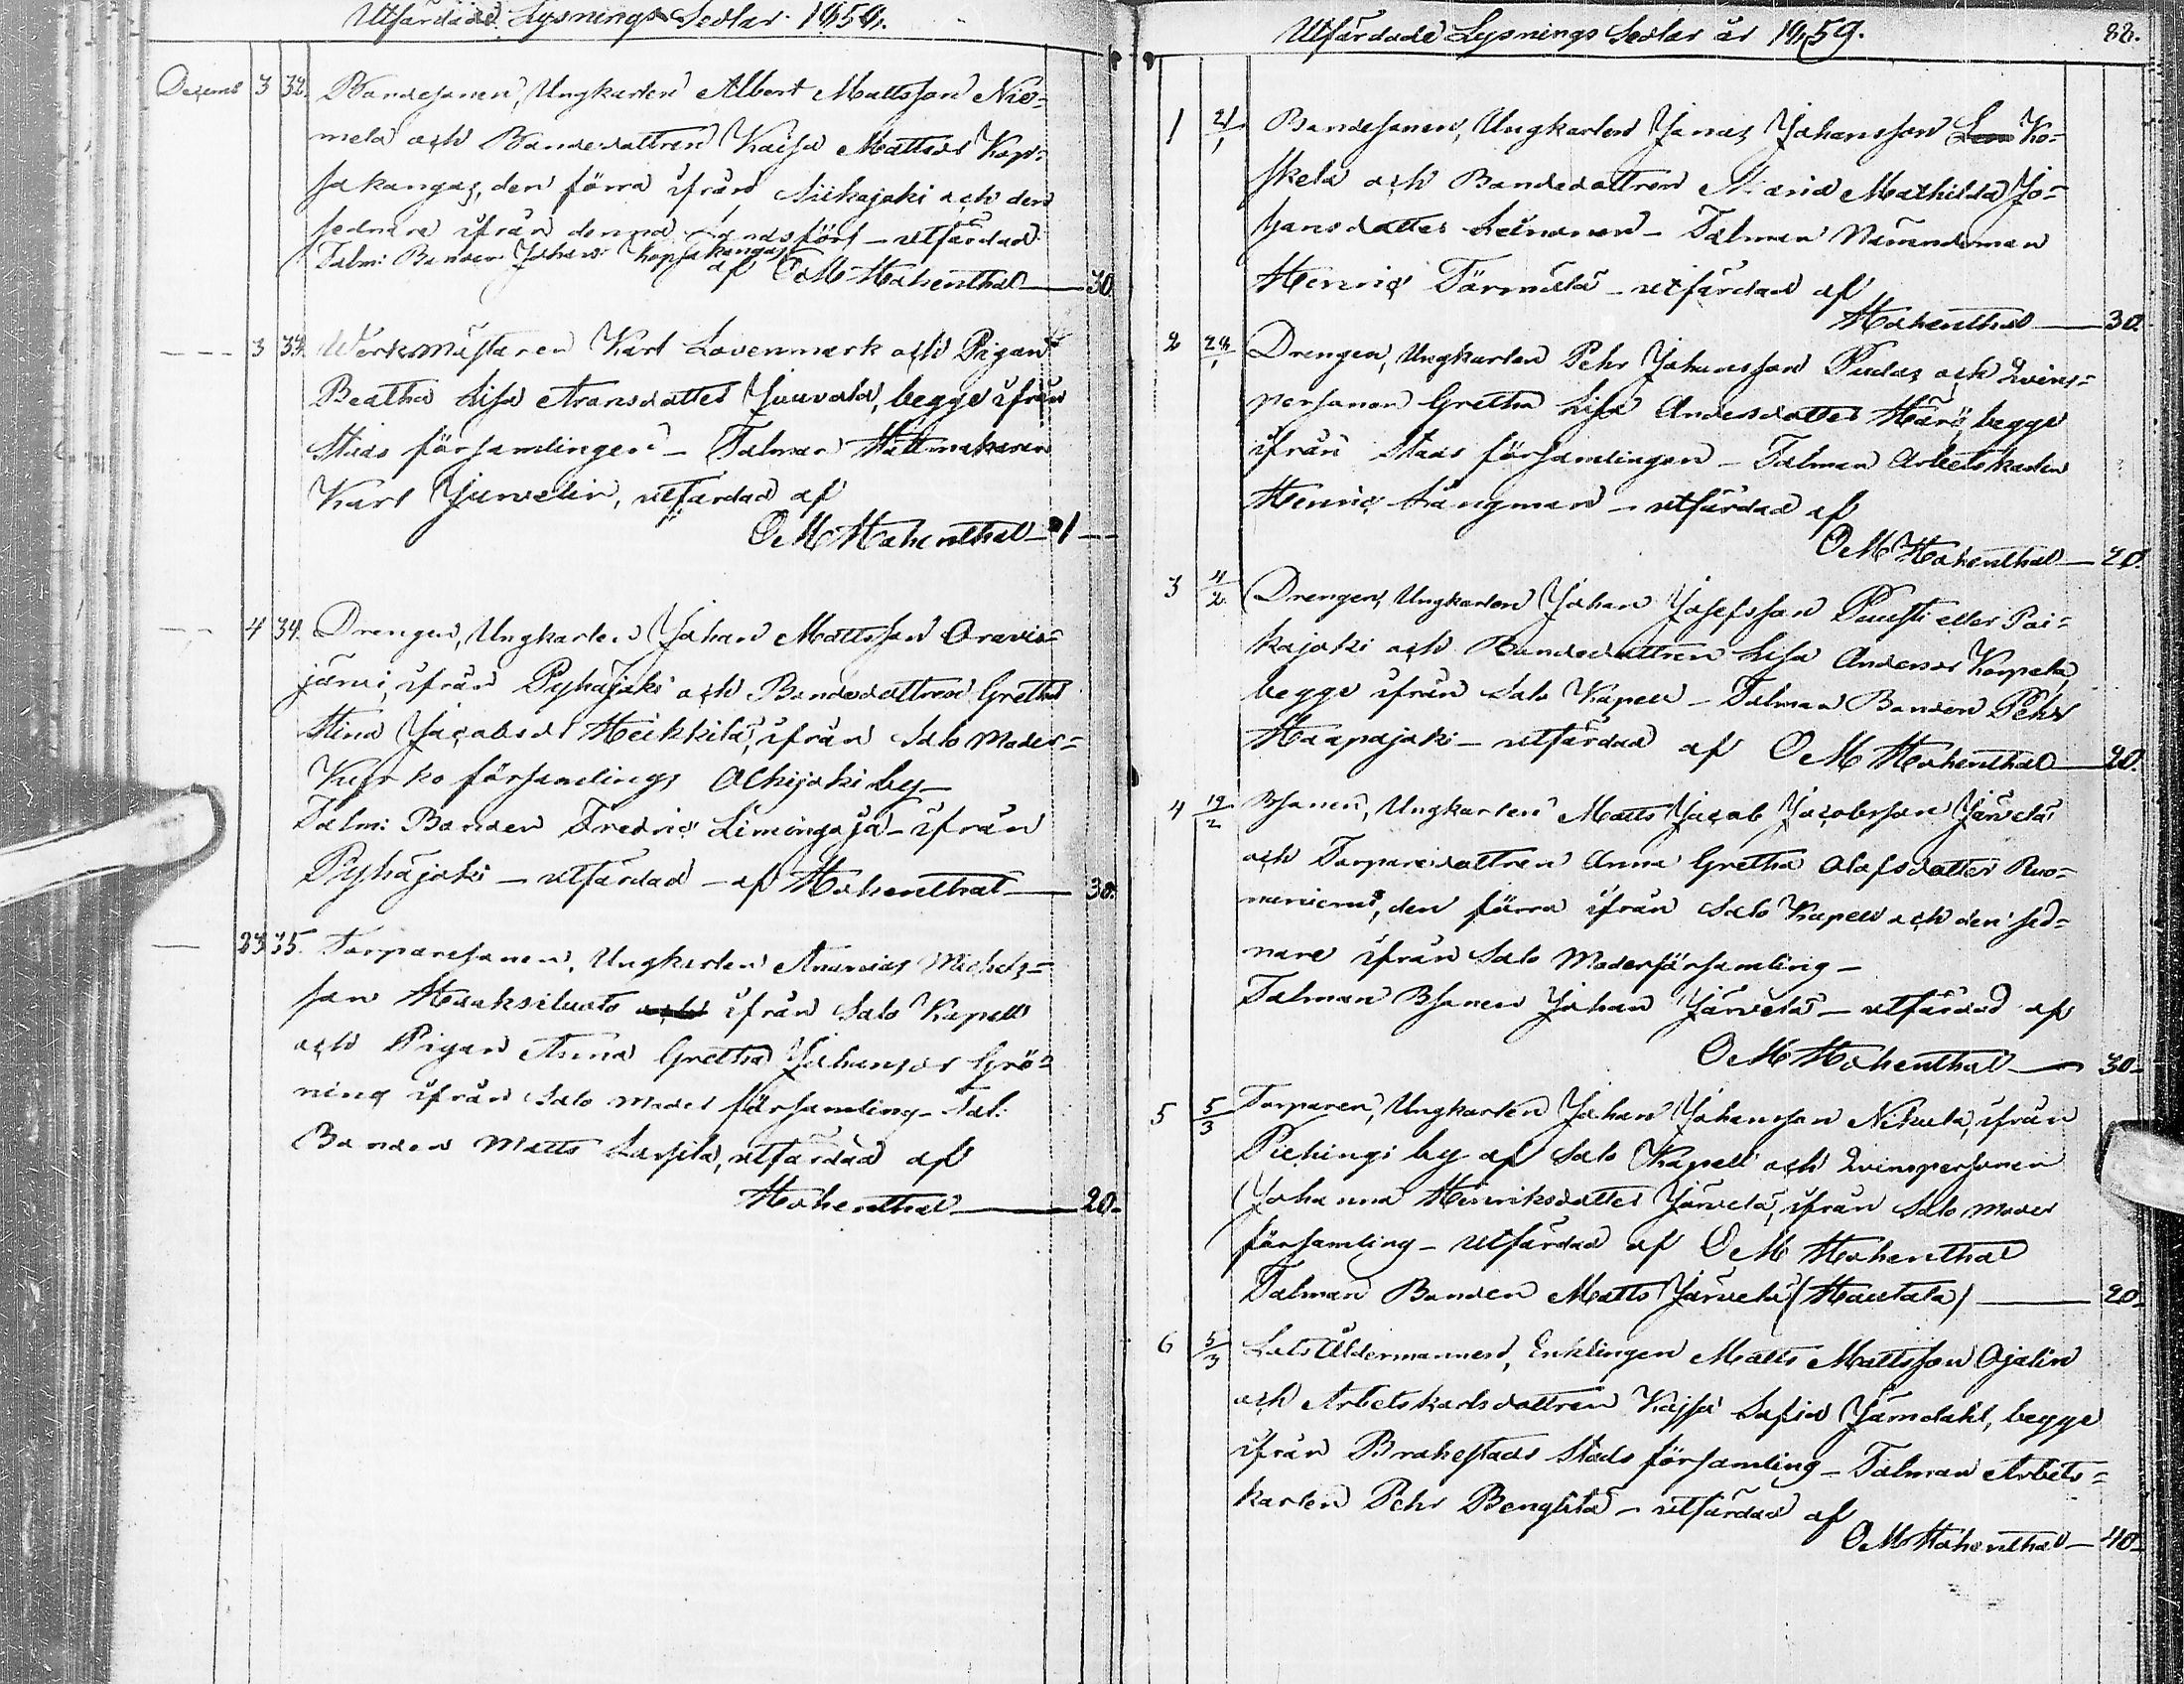 Utfärdade Lysnings Sedlar 1859.
Decemb 3 32. Bondesonen, Ungkarlen Albert Mattsson Nie-
melä och Bondedottren Kaisa Mattsdr Kop-
sakangas, den förra ifrån Siikajoki och den
sednare ifrån denna Landsförs - utfärdad
Talm: Bonden Johan Kopsakangas
af O M Hohenthal 30.
- - - 3 33. Werkmästaren Karl Lovenmark och Pigan
Beatha Lisa Aronsdotter Juuvala, begge ifrån
Stads församlingen - Talman Hattmakaren
Karl Junelin, utfärdad af
O M Hohenthal - 1 -
- - 4 34. Drengen, Ungkarlen Johan Mattsson Oravis-
järvi, ifrån Pyhäjoki och Bondedottren Gretha
Stina Jacobsdr Heikkilä, ifrån Salo Moder-
Kyrko församlings Olkijoki by -
Talm: Bonden Fredric Liminigoja - ifrån
Pyhäjoki - utfärdad - af Hohenthal 30.
- 23 35. Torparesonen, Ungkarlen Ananias Michels-
son Hauksiluoto och ifrån Salo Kapell
och Pigan Anna Gretha Johansdr Grö-
ning ifrån Salo Moder församling - Tal:
Bonden Matts Lassila, utfärdad af
Hohenthal 20.
Utfärdade Lysnings Sedlar år 1859. 88.
1 21/1 Bondesonen, Ungkarlen Jonas Johansson Ko-
skela och Bondedottren Maria Mathilda Jo-
hansdotter Leinonen - Talman Nämndeman
Henric Törmälä - utfärdad af
Hohenthal 30.
2 24/1 Drengen, Ungkarlen Pehr Johansson Pudas och Qvins-
personen Gretha Lisa Andersdotter Härö, begge
ifrån Stads församlingen - Talman Arbetskarlen
Henric Långman - utfärdad af
O M Hohenthal 20.
3 4/2 Drengen, Ungkarlen Johan Josefsson Puusti eller Poi-
kajoki och Bondedottren Lisa Andersdr Korpela,
begge ifrån Salo Kapell - Talman Bonden Pehr
Haapajoki - utfärdad af O M Hohenthal 20.
4 19/2 Bsonen, Ungkarlen Matts Jacob Jacobsson Järvelä
och Torparedottren Anna Gretha Olofsdotter Ruo-
, den förra ifrån Salo Kapell och den sed-
nare ifrån Salo Moderförsamling -
Talman Bsonen Johan Järvelä - utfärdad af
O M Hohenthal 30.
5 5/3 Torparen, Ungkarlen Johan Johansson Nikula, ifrån
Piehingi by af Salo Kapell och Qvinspersonen
Johanna Henriksdotter Järvelä, ifrån Salo Moder
församling - utfärdad af O M Hohenthal
Talman Bonden Matts Järvelä (Hautala) 20.
6 5/3 Lots Åldermannen, Enklingen Matts Mattsson Ojalin
och Arbetskarlsdottren Kajsa Sofia Jämdahl, begge
ifrån Brahestads Stads församling - Talman Arbets-
karlen Pehr Bengtlä - utfärdad af
O M Hohenthal - 40.